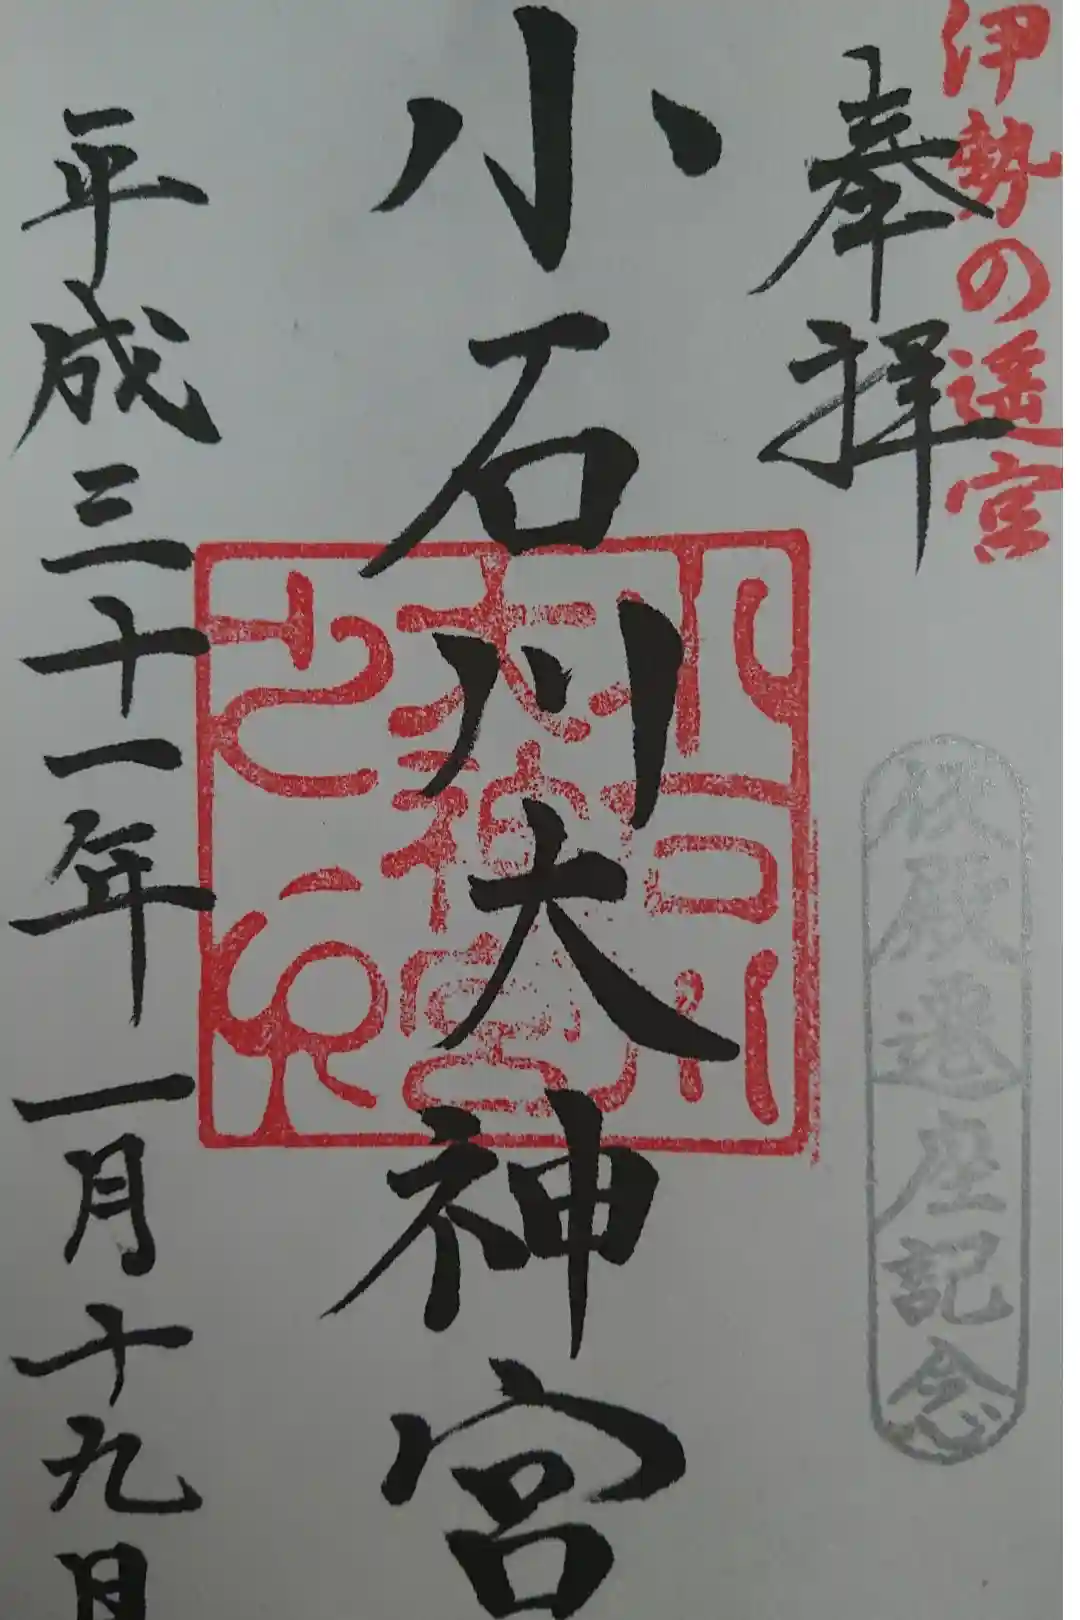 伊勢の遥宮
奉拝
仮殿遷座記念
小石川大神宮
小石川
大神宮
之印
平成三十一年一月十九日